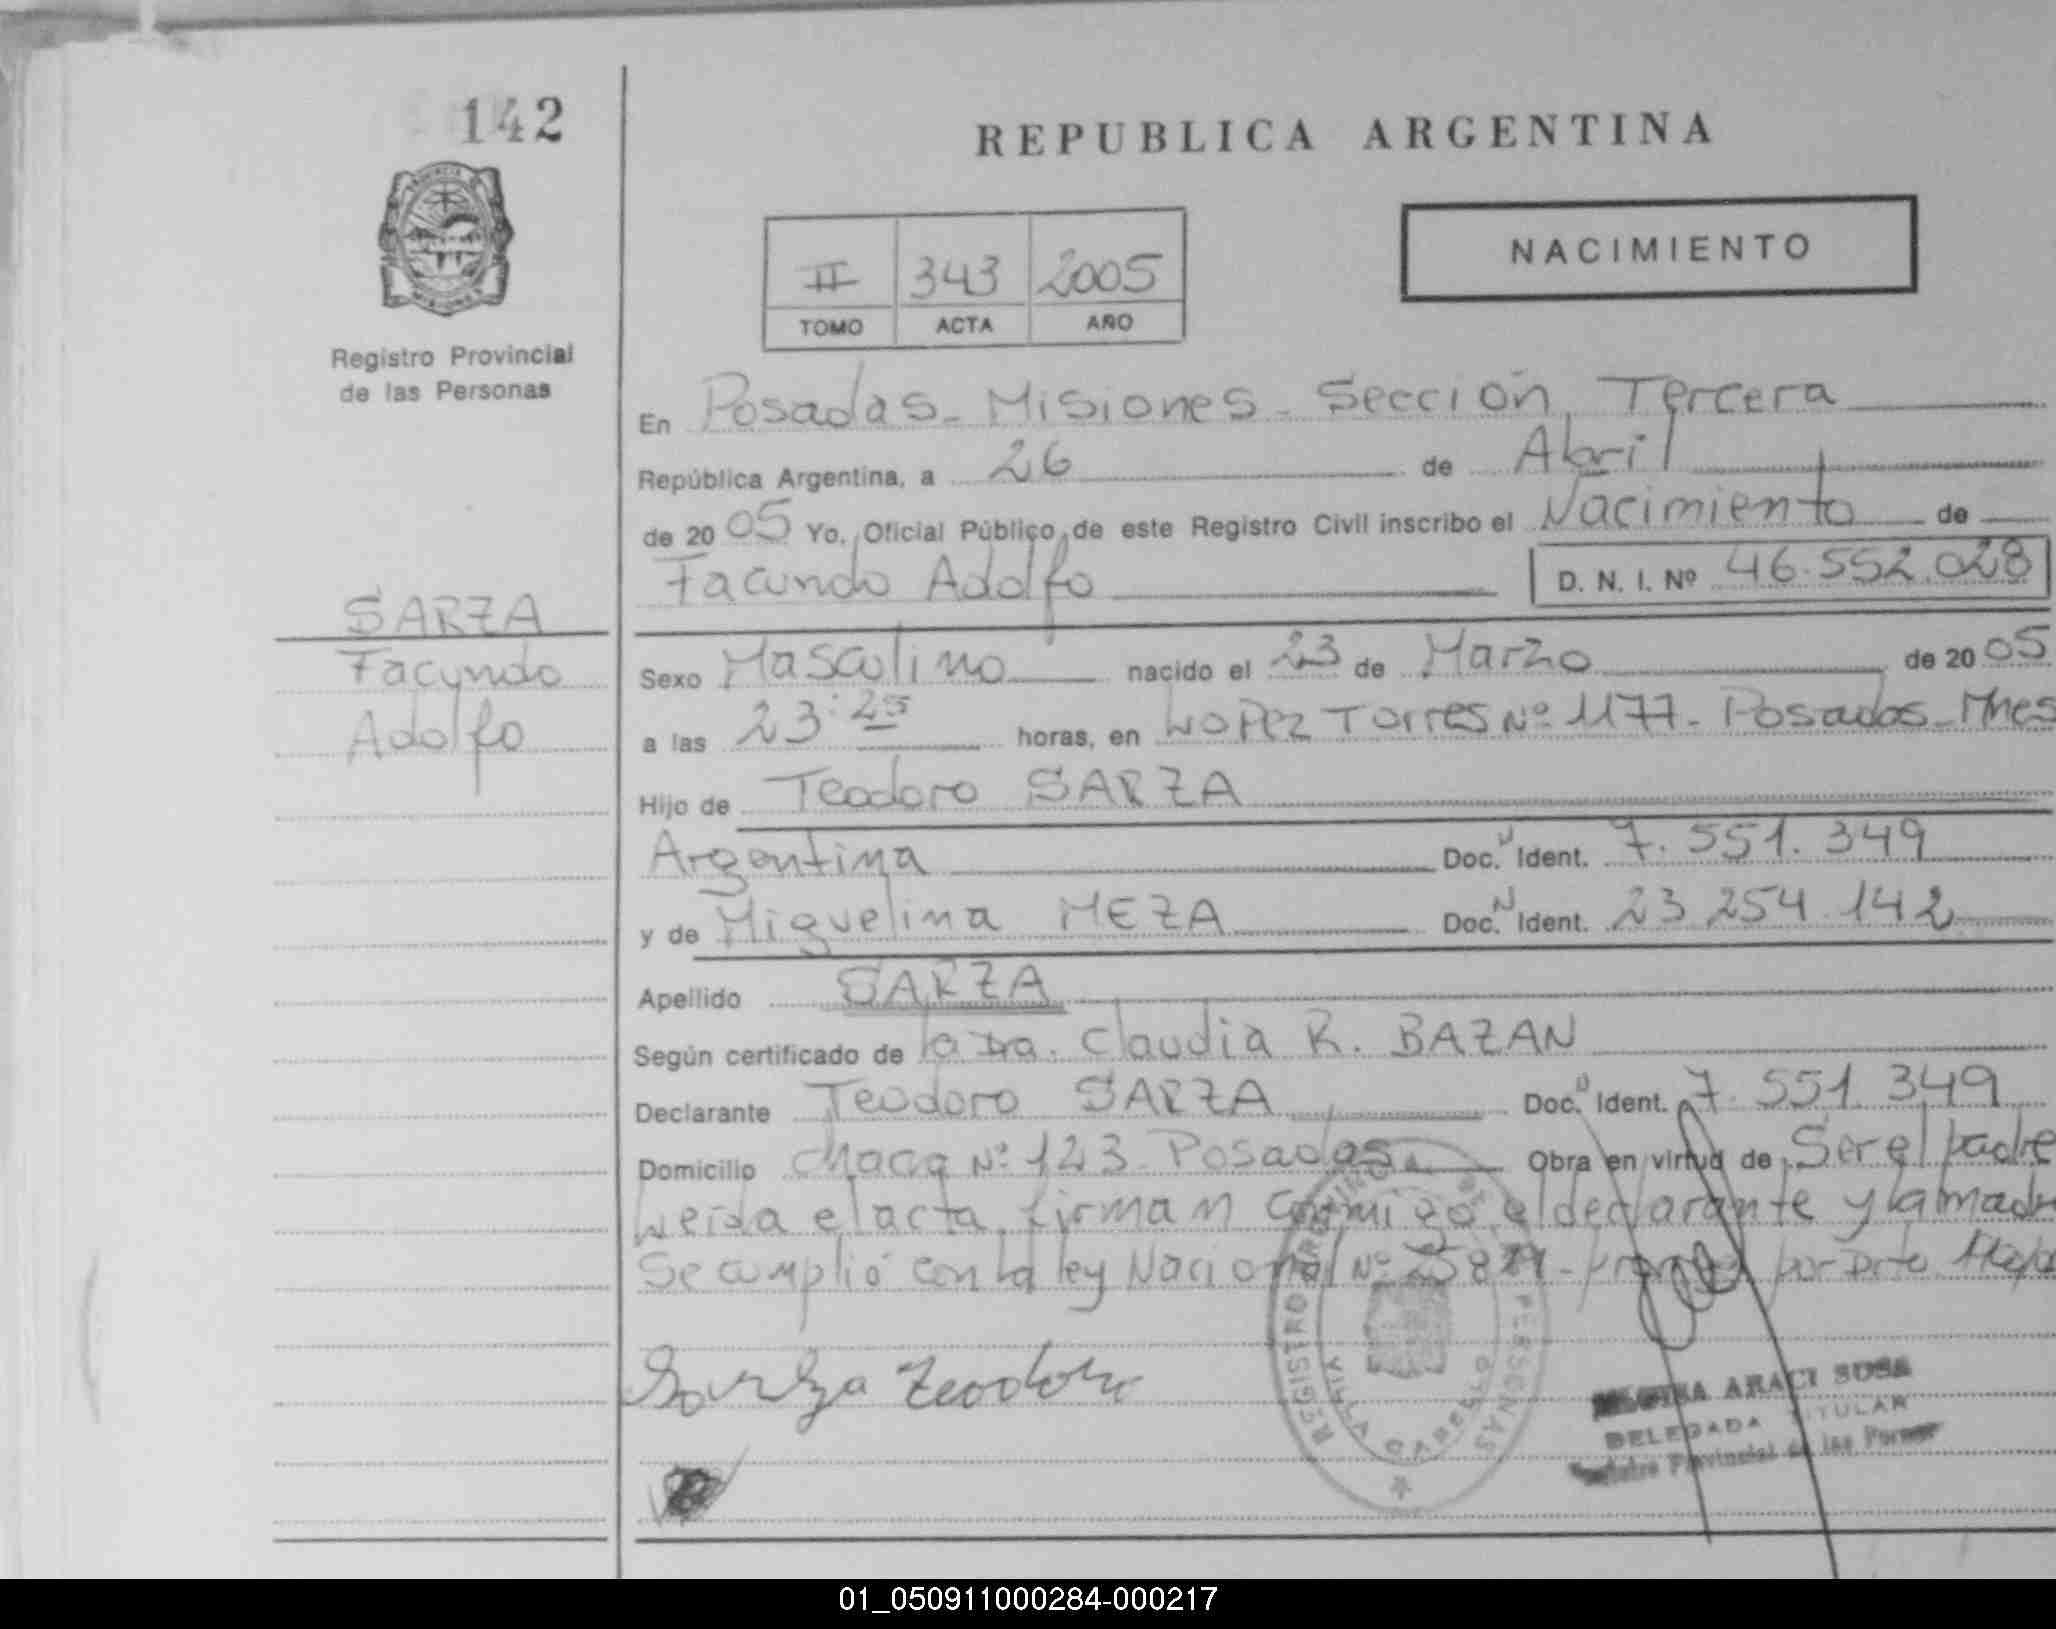 142
REPUBLICA ARGENTINA
NACIMIENTO
II 343 2005
TOMO ACTA AÑO
Registro Provincial
de las Personas
En Posadas - Misiones - Sección Tercera
República Argentina, a 26 de Abril
de 2005 Yo, Oficial Público de este Registro Civil inscribo el Nacimiento de
Facundo Adolfo D. N. I. Nº 46.552.028
SARZA
Facundo
Adolfo
Sexo Masculino nacido el 23 de Marzo de 2005
a las 23:25 horas, en Lopez Torres Nº 1177 - Posadas - Mnes
Hijo de Teodoro SARZA
Argentina Doc. Ident. 7.551.349
y de Miguelina MEZA Doc. Ident. 23.254.142
Apellido SARZA
Según certificado de la Dra. Claudia R. BAZAN
Declarante Teodoro SARZA Doc. Ident. 7.551.349
Domicilio Chacra Nº 123 Posadas Obra en virtud de Ser el padre
Leída el acta, firman conmigo el declarante y la madre
Se cumplió con la ley Nacional Nº por Dpto.
Sarza Teodoro
REGISTRO PERSONAS
ARACI SOSA
DELEGADA TITULAR
Provincial de las
01_050911000284-000217